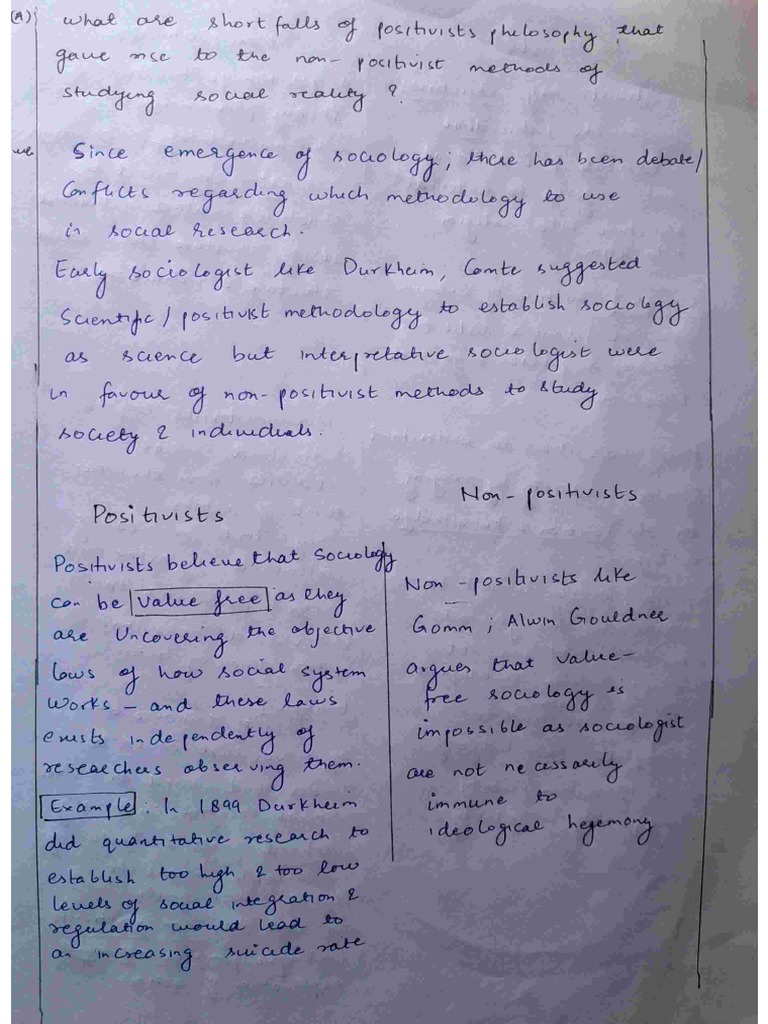 (A) What are short falls of positivists philosophy that
gave rise to the non-positivist methods of
studying social reality?
Since emergence of sociology; there has been debate/
Conflicts regarding which methodology to use
in social research.
Early sociologist like Durkheim, Comte suggested
Scientific/positivist methodology to establish sociology
as science but interpretative sociologist were
in favour of non-positivist methods to study
society & individuals.
Positivists
Positivists believe that Sociology
can be value free as they
are Uncovering the objective
laws of how social system
works - and these laws
exists independently of
researchers observing them.
Example: In 1899 Durkheim
did quantitative research to
establish too high & too low
levels of social integration &
regulation would lead to
an increasing suicide rate
Non-positivists
Non-positivists like
Gomm; Alwin Gouldner
argues that value-
free sociology is
impossible as sociologist
are not necessarily
immune to
ideological hegemony